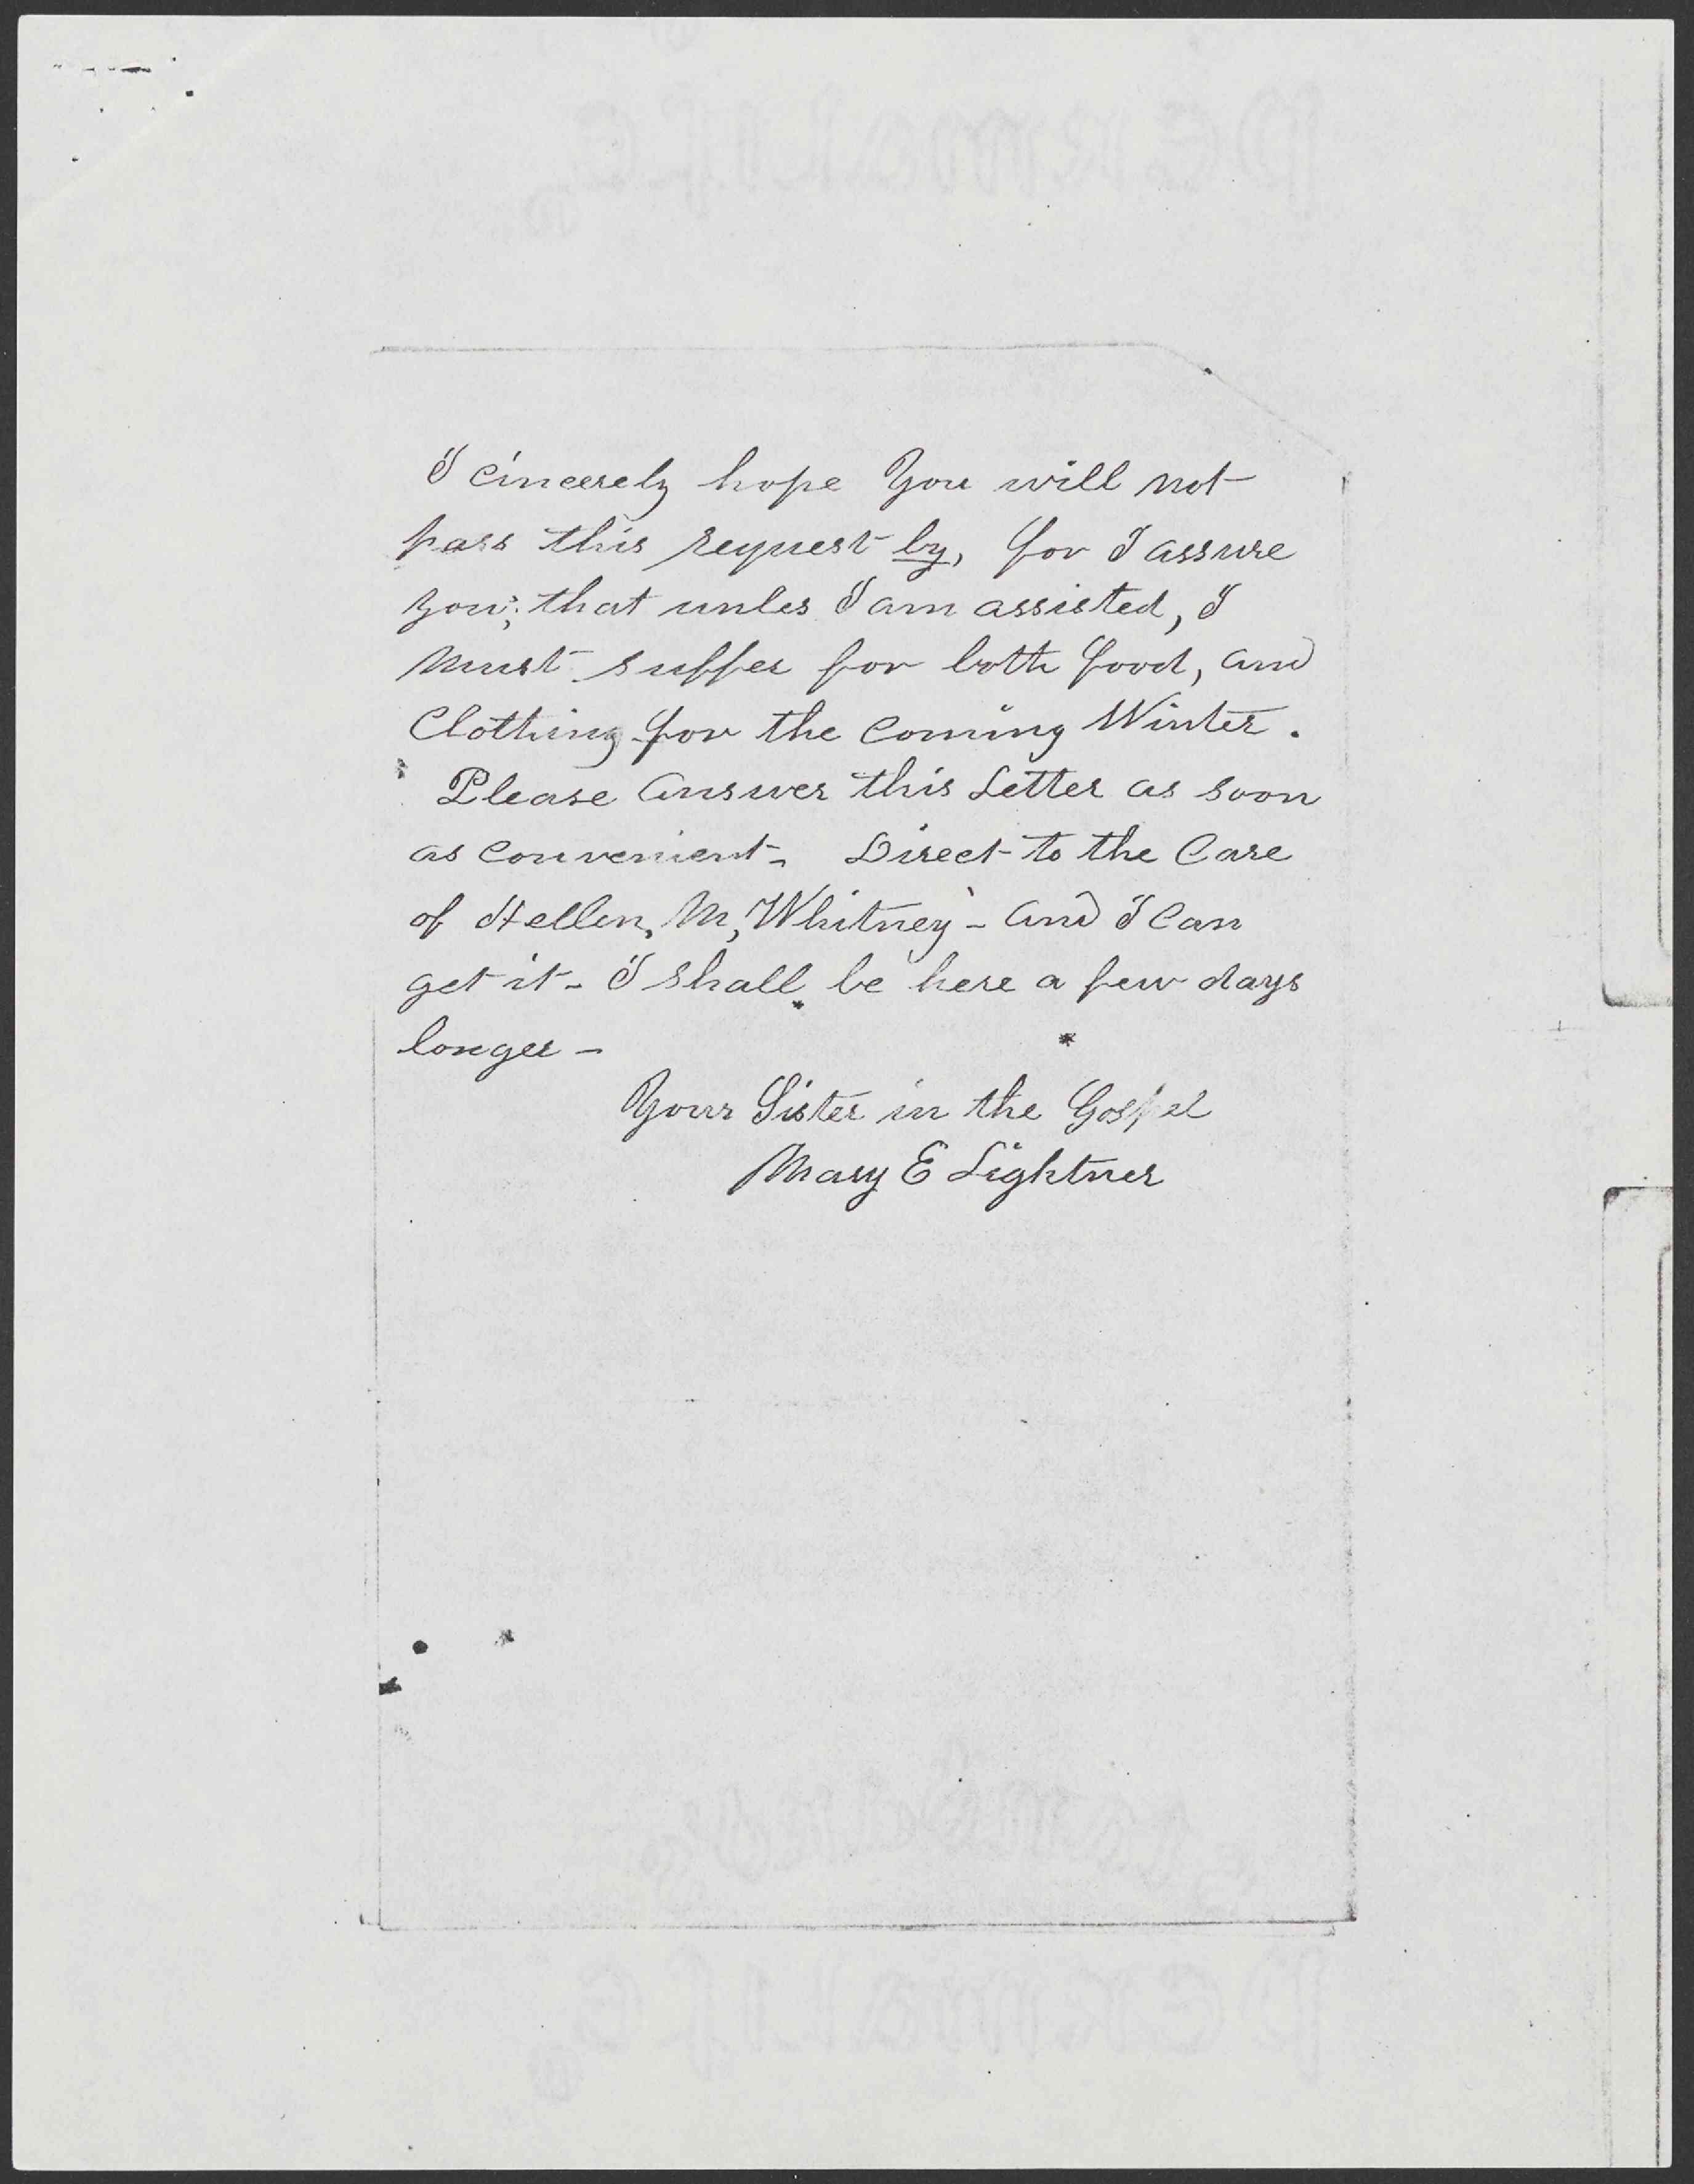 I cincerely hope You will not
pass this request by, for I assure
you; that unles I am assisted, I
must suffer for both food, and
Clothing for the Coming Winter.
Please Answer this Letter as soon
as Convenient- Direct to the Care
of Hellen, M, Whitney - And I Can
get it - I shall be here a few days
longer -
Your Sister in the Gospel
Mary E Lightner